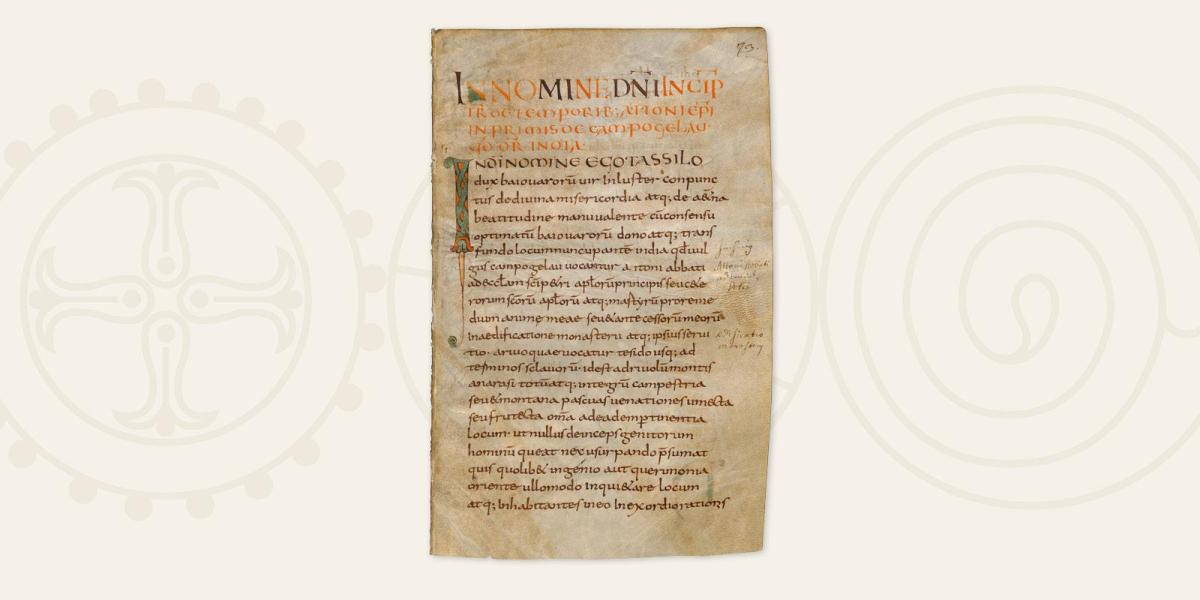 73.
INNOMINE DN̄I INCIP̄
INDĪ NOMINE EGO TASSILO
dux baiouuarorū uir Inluster conpunc
tus dediuina misericordia atq; de
beatitudine manuualente cūconsensu
optimatū baiouuarorū dono atq; trans
fundo locumnuncupantē India qd̄uul
gus campogelau uocantur a Itoni abbati
principis seu cete
rorum sc̄orū apl̄orū atq; martyrū proreme
dium anime meae seu& antecessorūmeorū
Inaedificatione monasterii atq; ipsius serui
tio. a riuo quae uocatur tesido usq; ad
terminos sclauorū. id est ad riuolū montis
anarasi totūatq; integrū campestria
seu& montana pascuas uenationes
seu frutecta om̄a adeadem ptinentia
Locum. ut nullus deinceps genitorum
hominū queat nex usurpando p̄sumat
quis quolib& ingenio aut querimonia
oriente ullomodo Inqui&are locum
atq; Inhabitantes Ineo Inexordio rationis